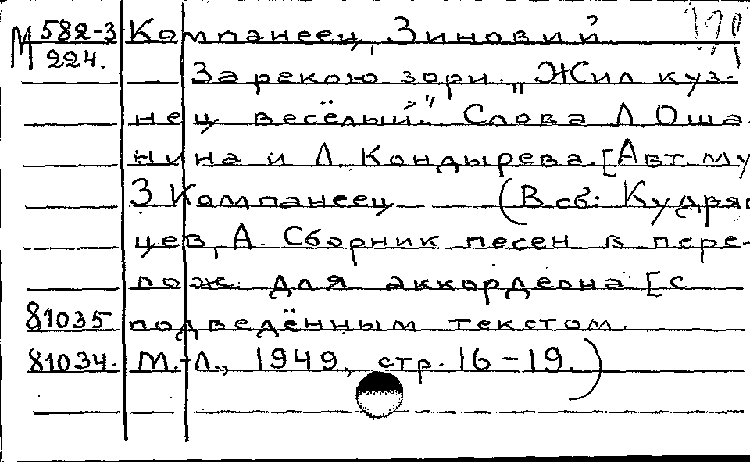 М 582-3 Компанеец, Зиновий
224.
За рекою зори. „Жил куз-
нец весёлый." Слова Л. Оша-
нина и Л. Кондырева. [Авт. му
З Компанеец (В сб: Кудряв
цев, А. Сборник песен в пере-
лож. для аккордеона [с
81035 подведённым текстом.
81034. М.-Л., 1949, стр. 16-19.)